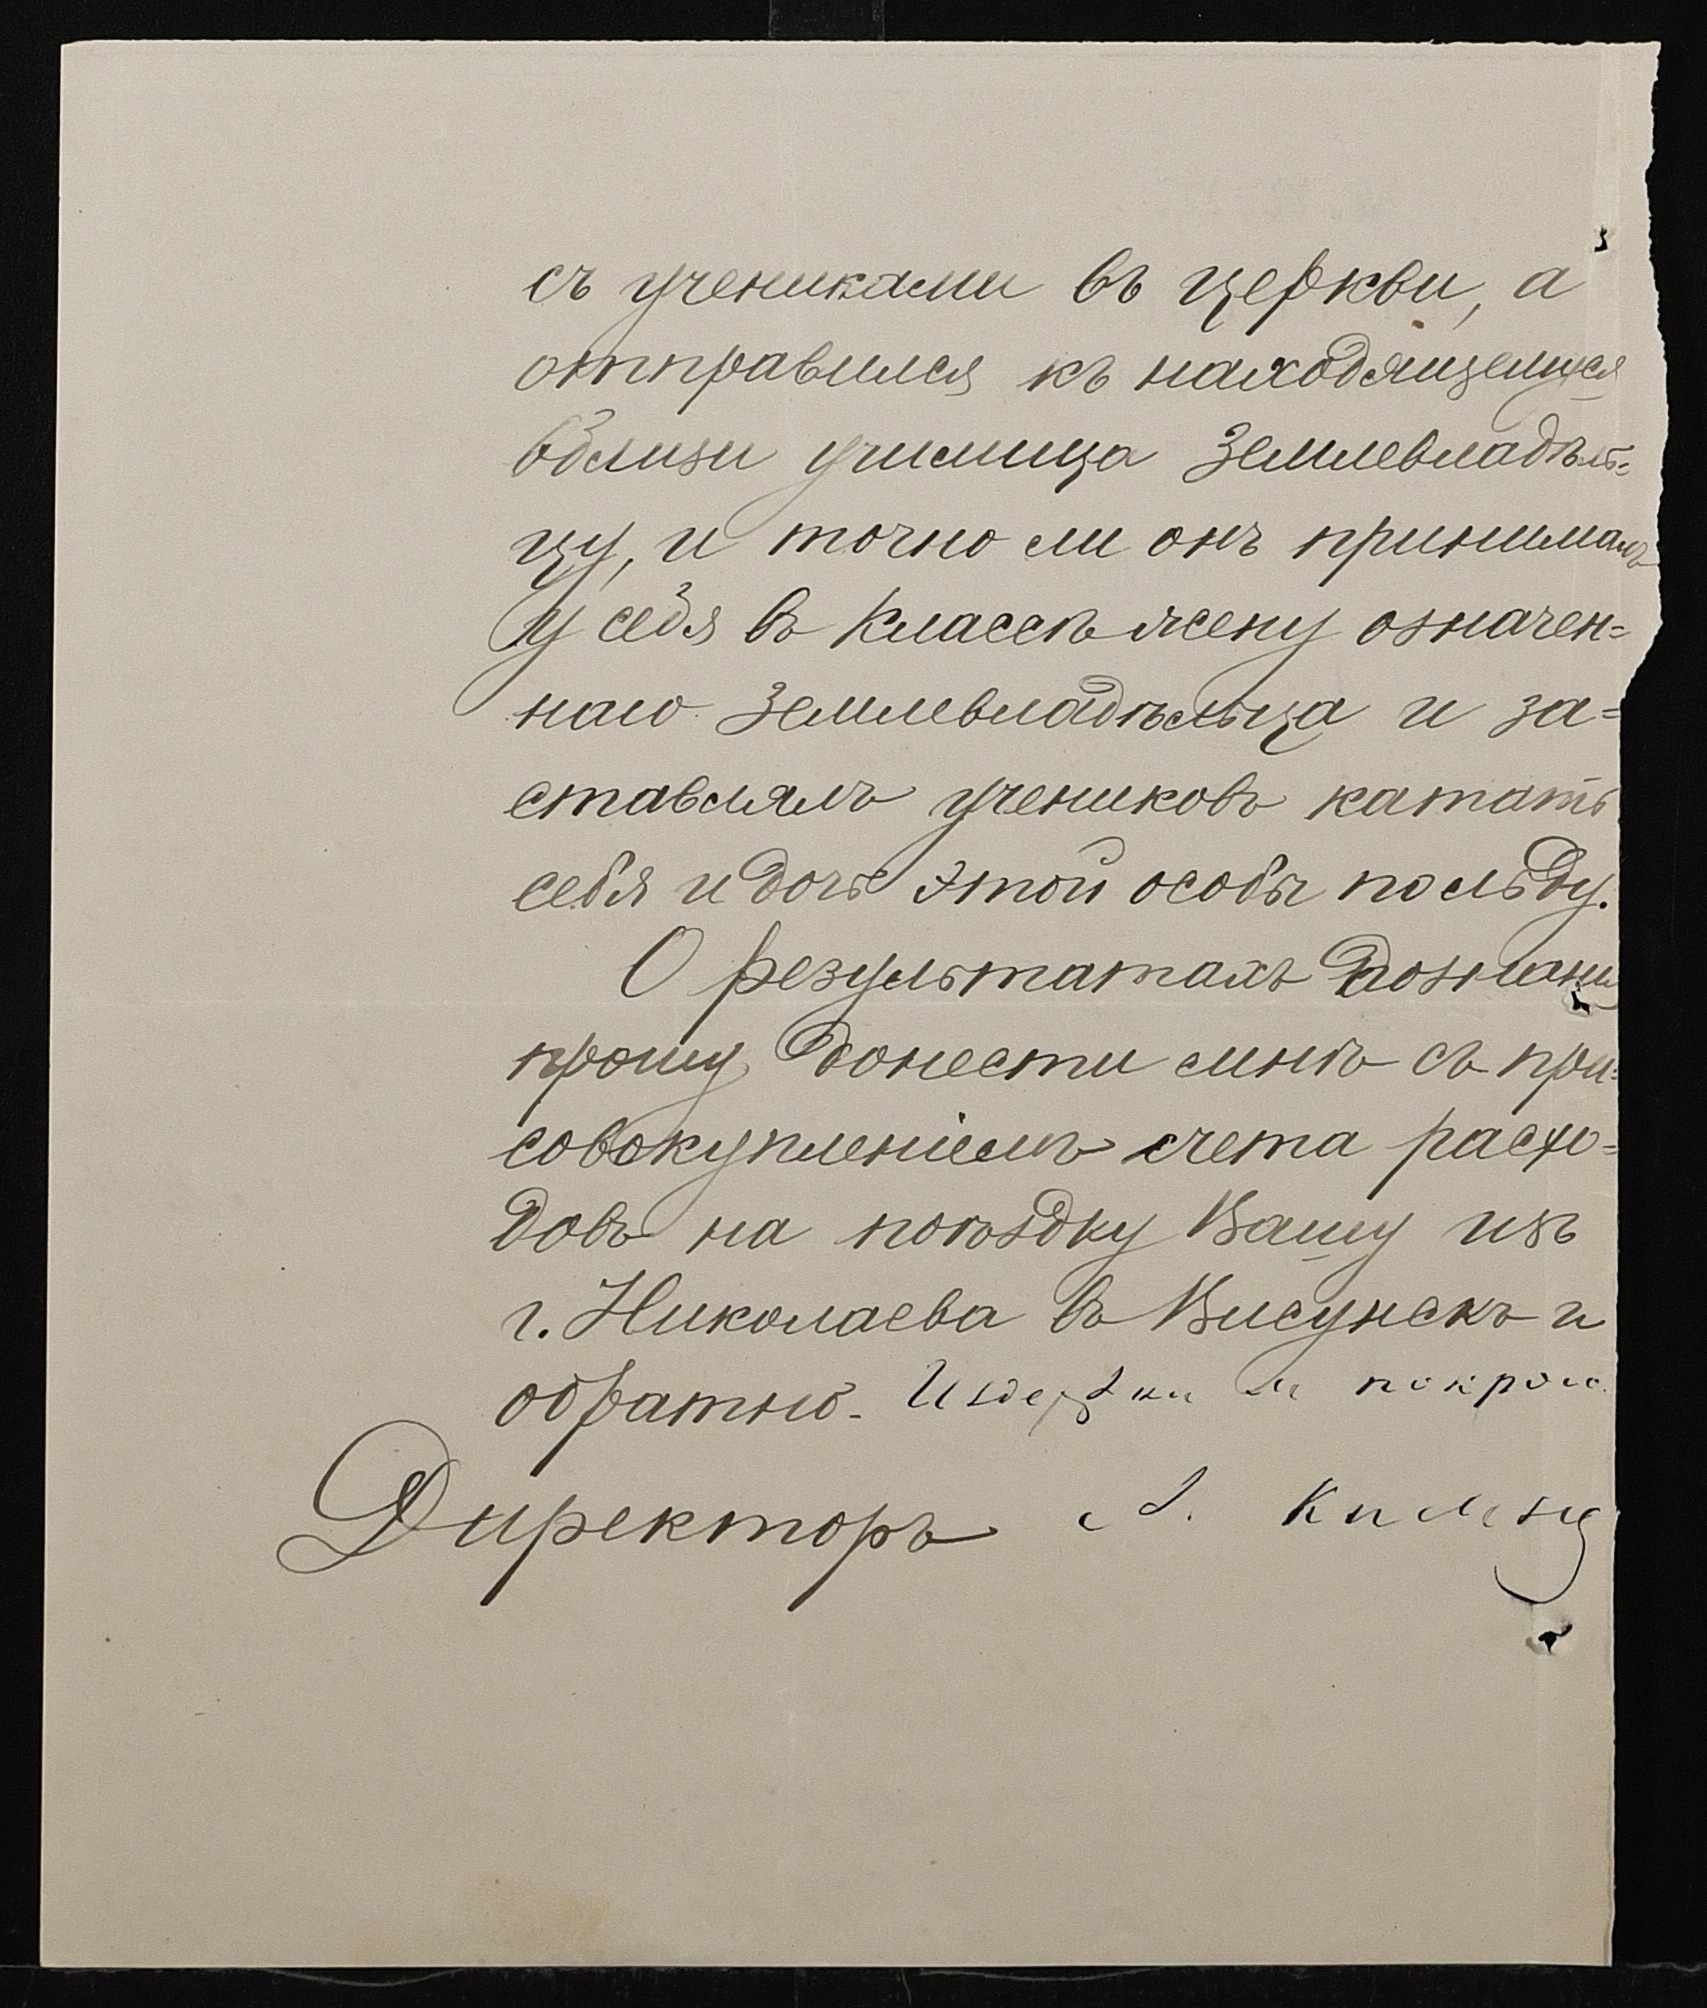 съ учениками въ церкви, а
отправился къ находящемуся
вблизи училища землевладѣль=
цу, и точно ли онъ принималъ
у себя въ классѣ жену означен=
наго землевладѣльца и за=
ставлялъ учениковъ катать
себя и дочь этой особы по льду.
О результатахъ дознанія
прошу донести мнѣ съ при=
совокупленіемъ счета расхо=
довъ на поѣздку Вашу изъ
г. Николаева въ Висунскъ и
обратно. Издержки покрою
Директоръ